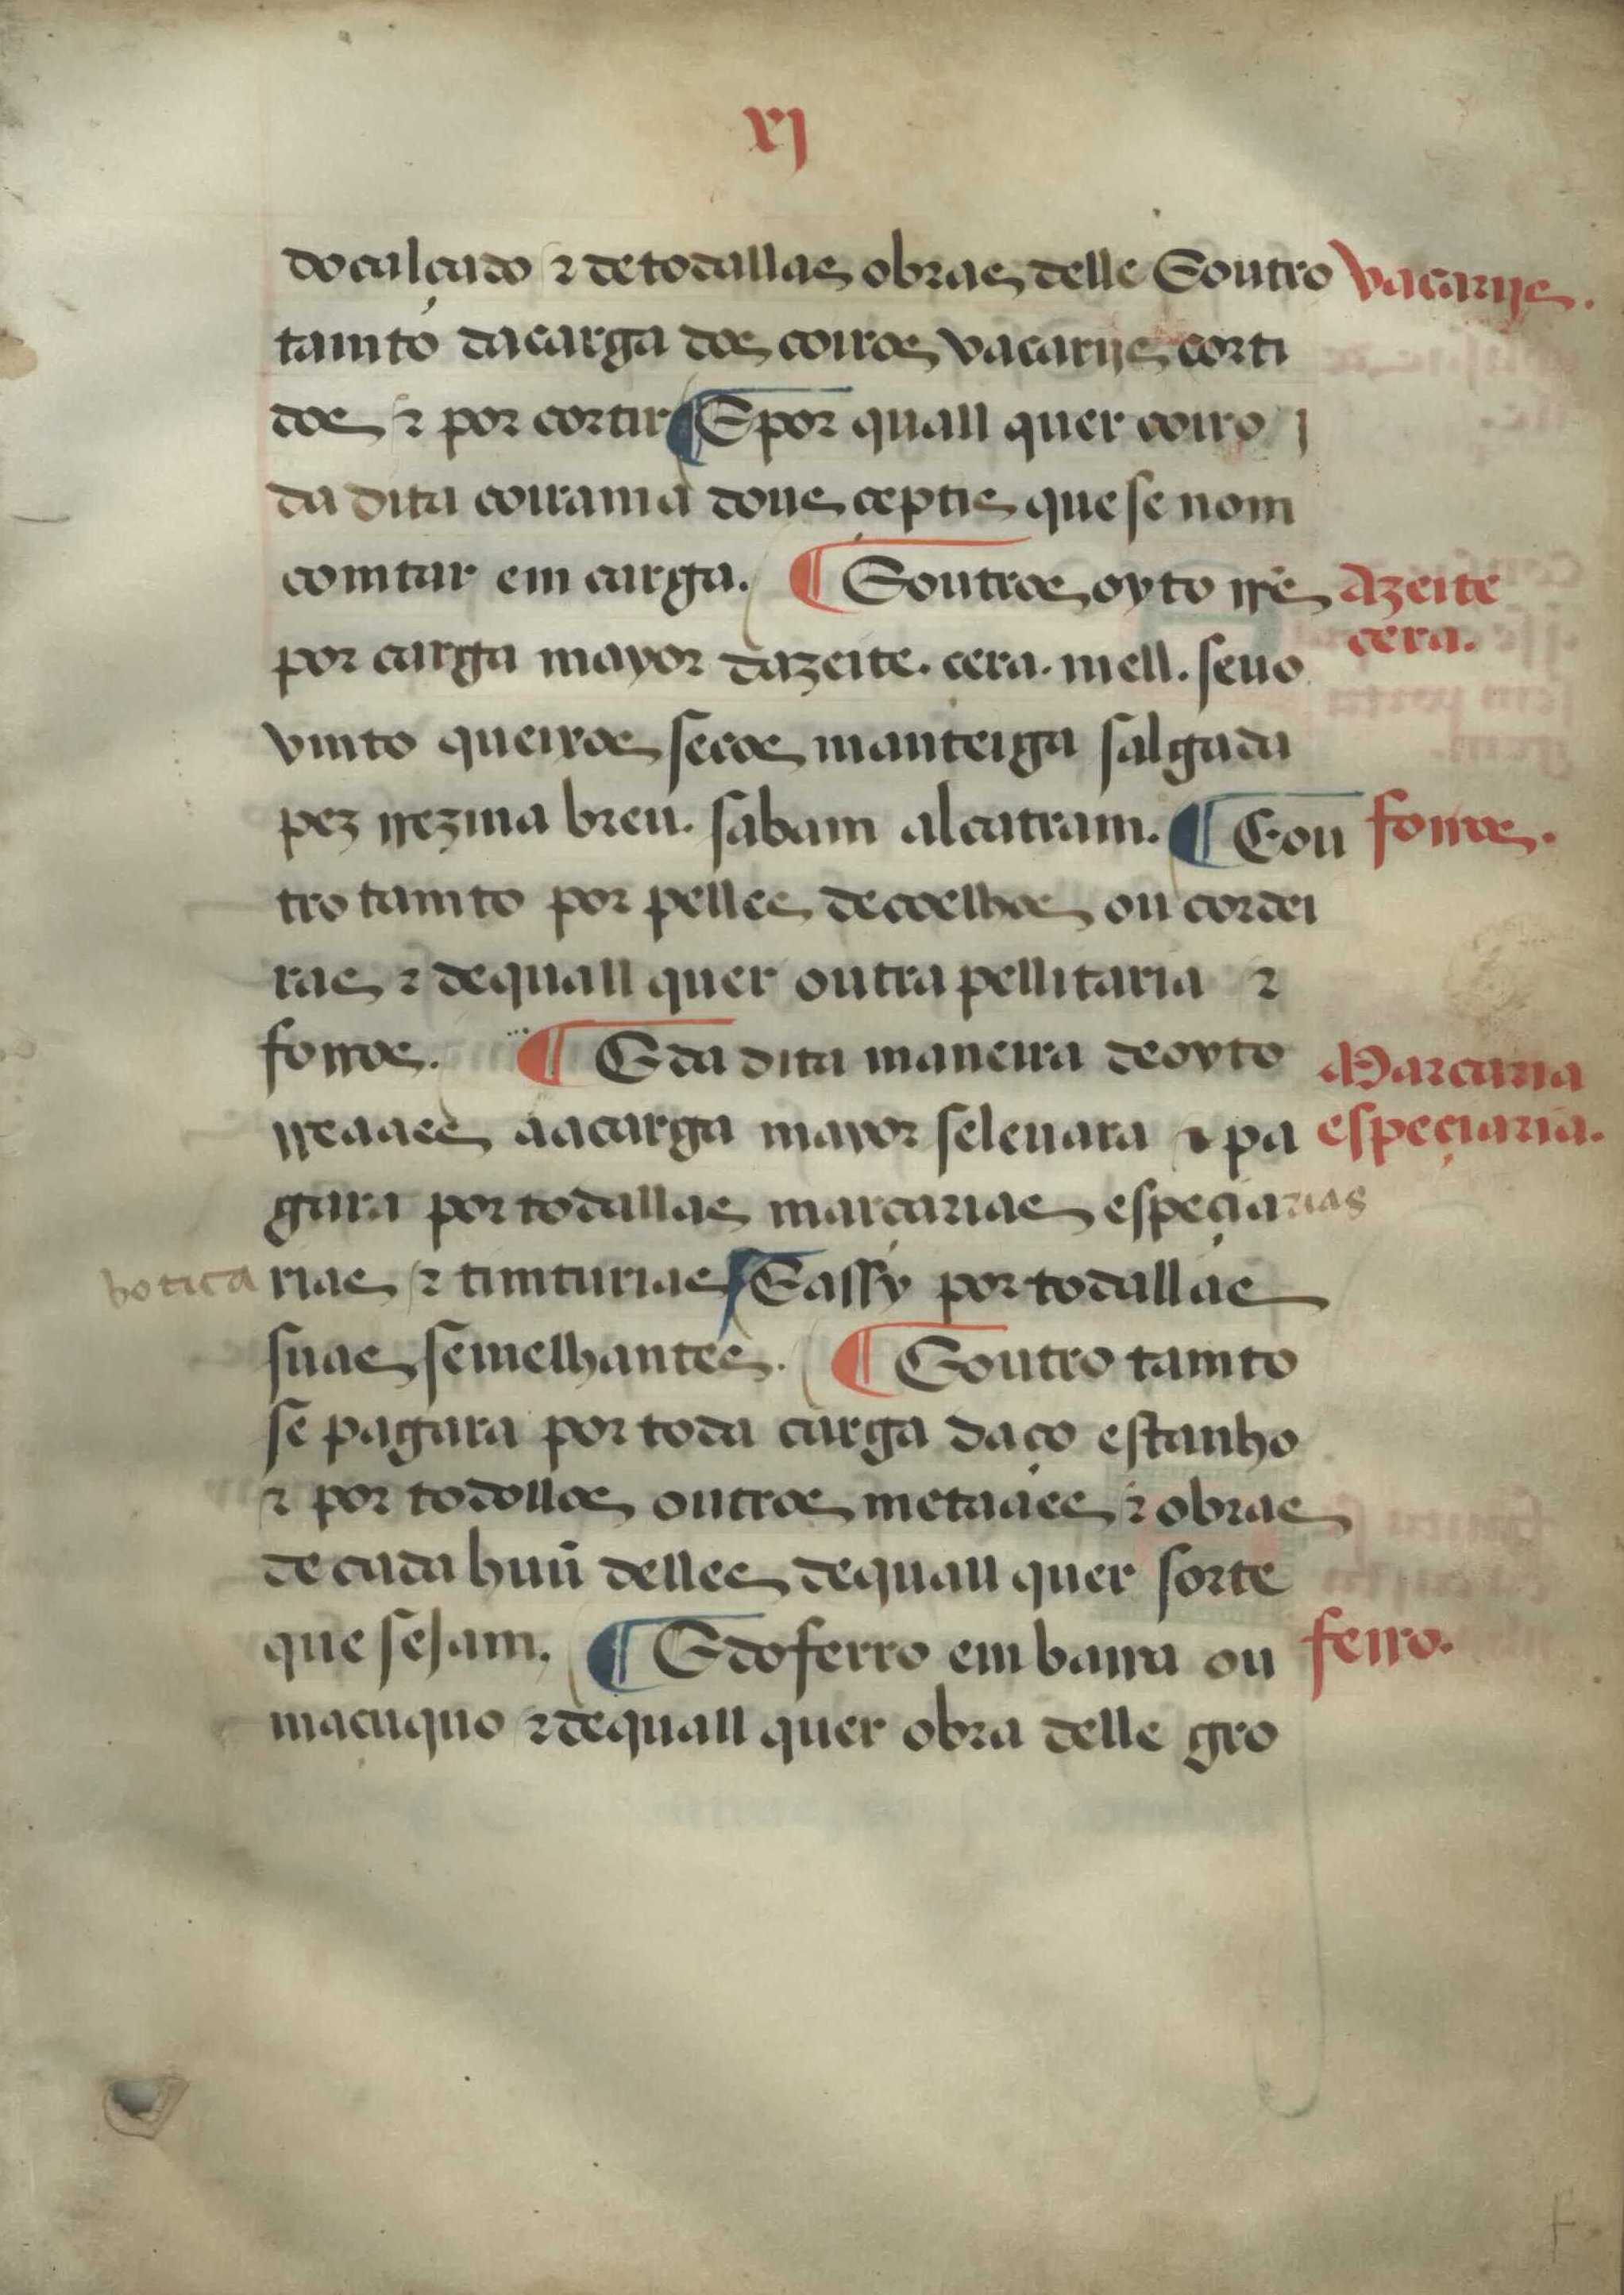 xj
do calçado & de todallas obras delle E outro vacarijs.
tamto da carga dos coiros vacarijs corti
dos & por cortir ¶ E por quall quer coiro j
da dita coirama dous ceptis que se nom
comtar em carga. ¶ E outros oyto rrs̃ Azeite
cera.
por carga mayor dazeite. cera. mell. seuo
vnto queixos secos manteiga salgada
pez rrezina breu. sabam alcatram. ¶ E ou forros.
tro tamto por pelles de coelhos ou cordei
ras & de quall quer outra pellitaria &
forros. ¶ E da dita maneira de oyto Marcaria
rreaaes aa carga mayor se leuara & pa espeçiaria.
gara por todallas marcarias espeçiarias
botica rias & timturias ¶ E assy por todallas
suas semelhantes. ¶ E outro tamto
se pagara por toda carga daço estanho
& por todollos outros metaaes & obras
de cada huũ delles de quall quer sorte
que sejam. ¶ E do ferro em barra ou ferro.
maçuquo & de quall quer obra delle gro